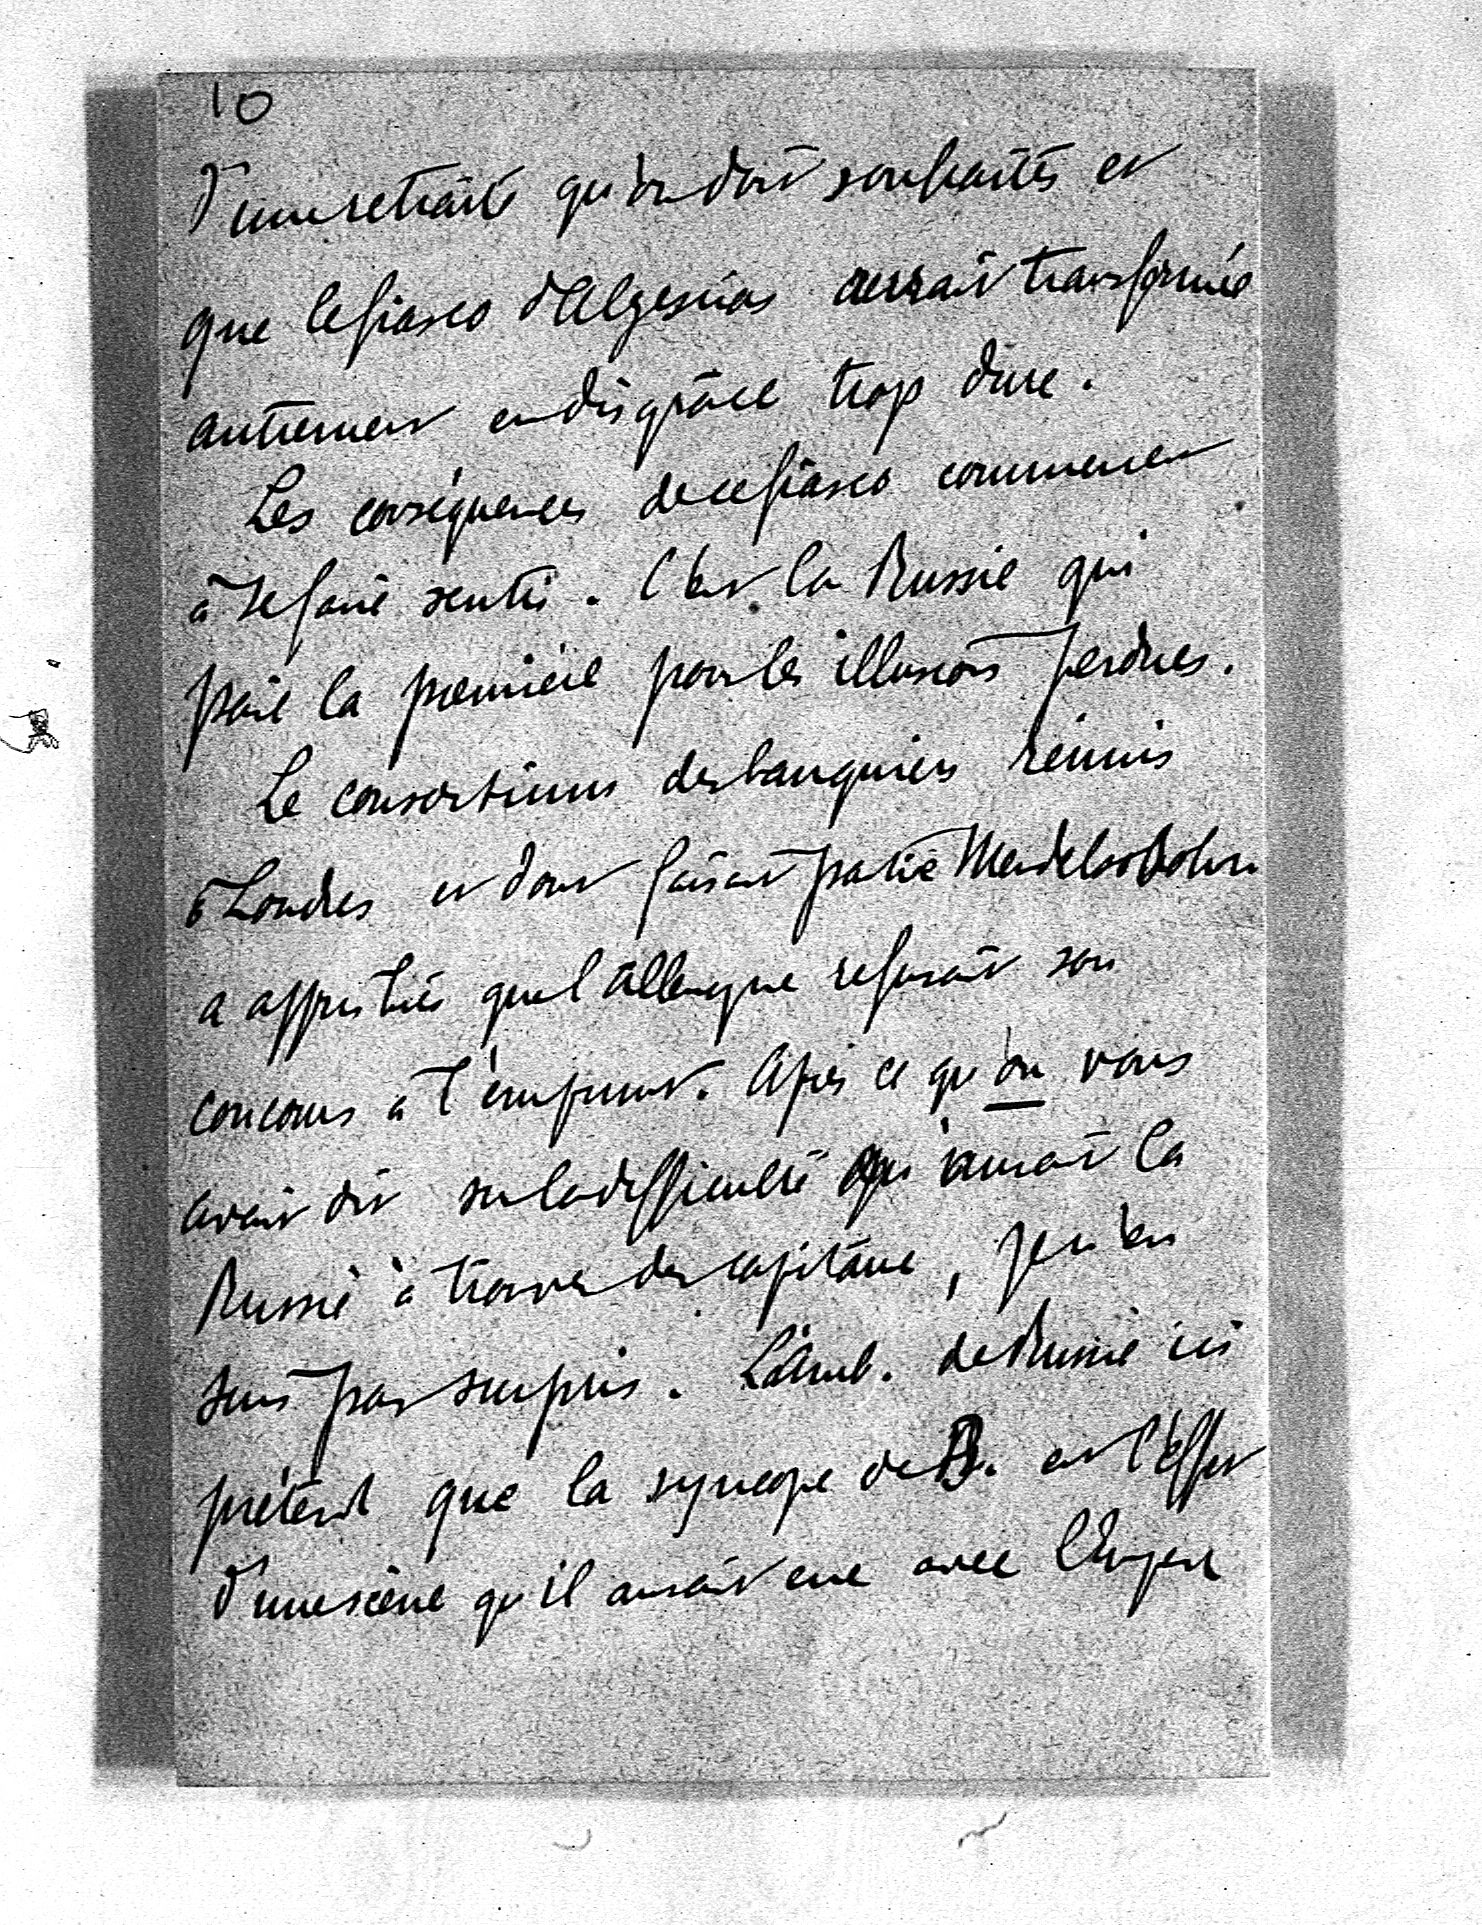 10
d'une retraite qu'on doit souhaiter et
que le fiasco d'Algesiras aurait transformée
autrement en disgrâce trop dure.
Les conséquences de ce fiasco commencent
à se faire sentir. C'est la Russie qui
paie la première pour les illusions perdues.
Le consortium des banquiers réunis
à Londres et dont faisait partie Mendelssohn
a appris hier que l'Allemagne refusait son
concours à l'emprunt. Après ce qu'on vous
avait dit sur la difficulté qu'aurait la
Russie à trouver des capitaux, je n'en
suis pas surpris. L'Amb. de Russie ici
prétend que la syncope de B. est l'effet
d'une scène qu'il aurait eue avec l'Emper